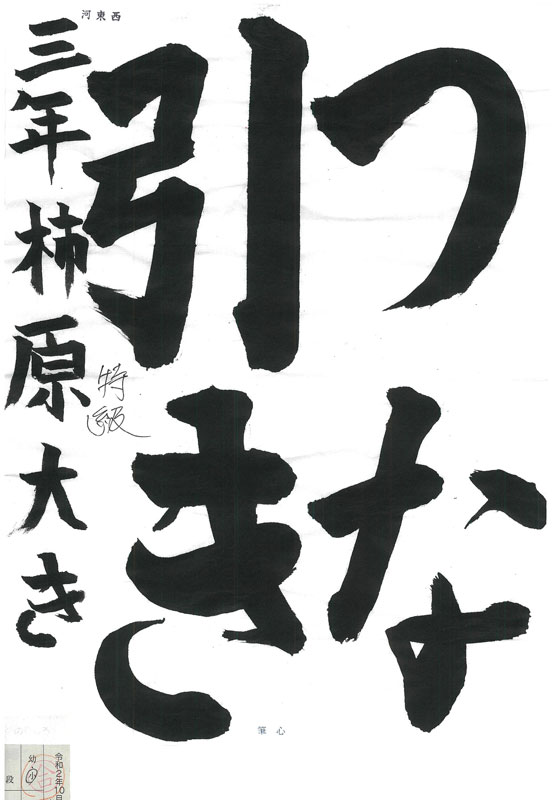 つな
引き
三年柿原大き
特級
西東河
心筆
令和2年10
幼小
段